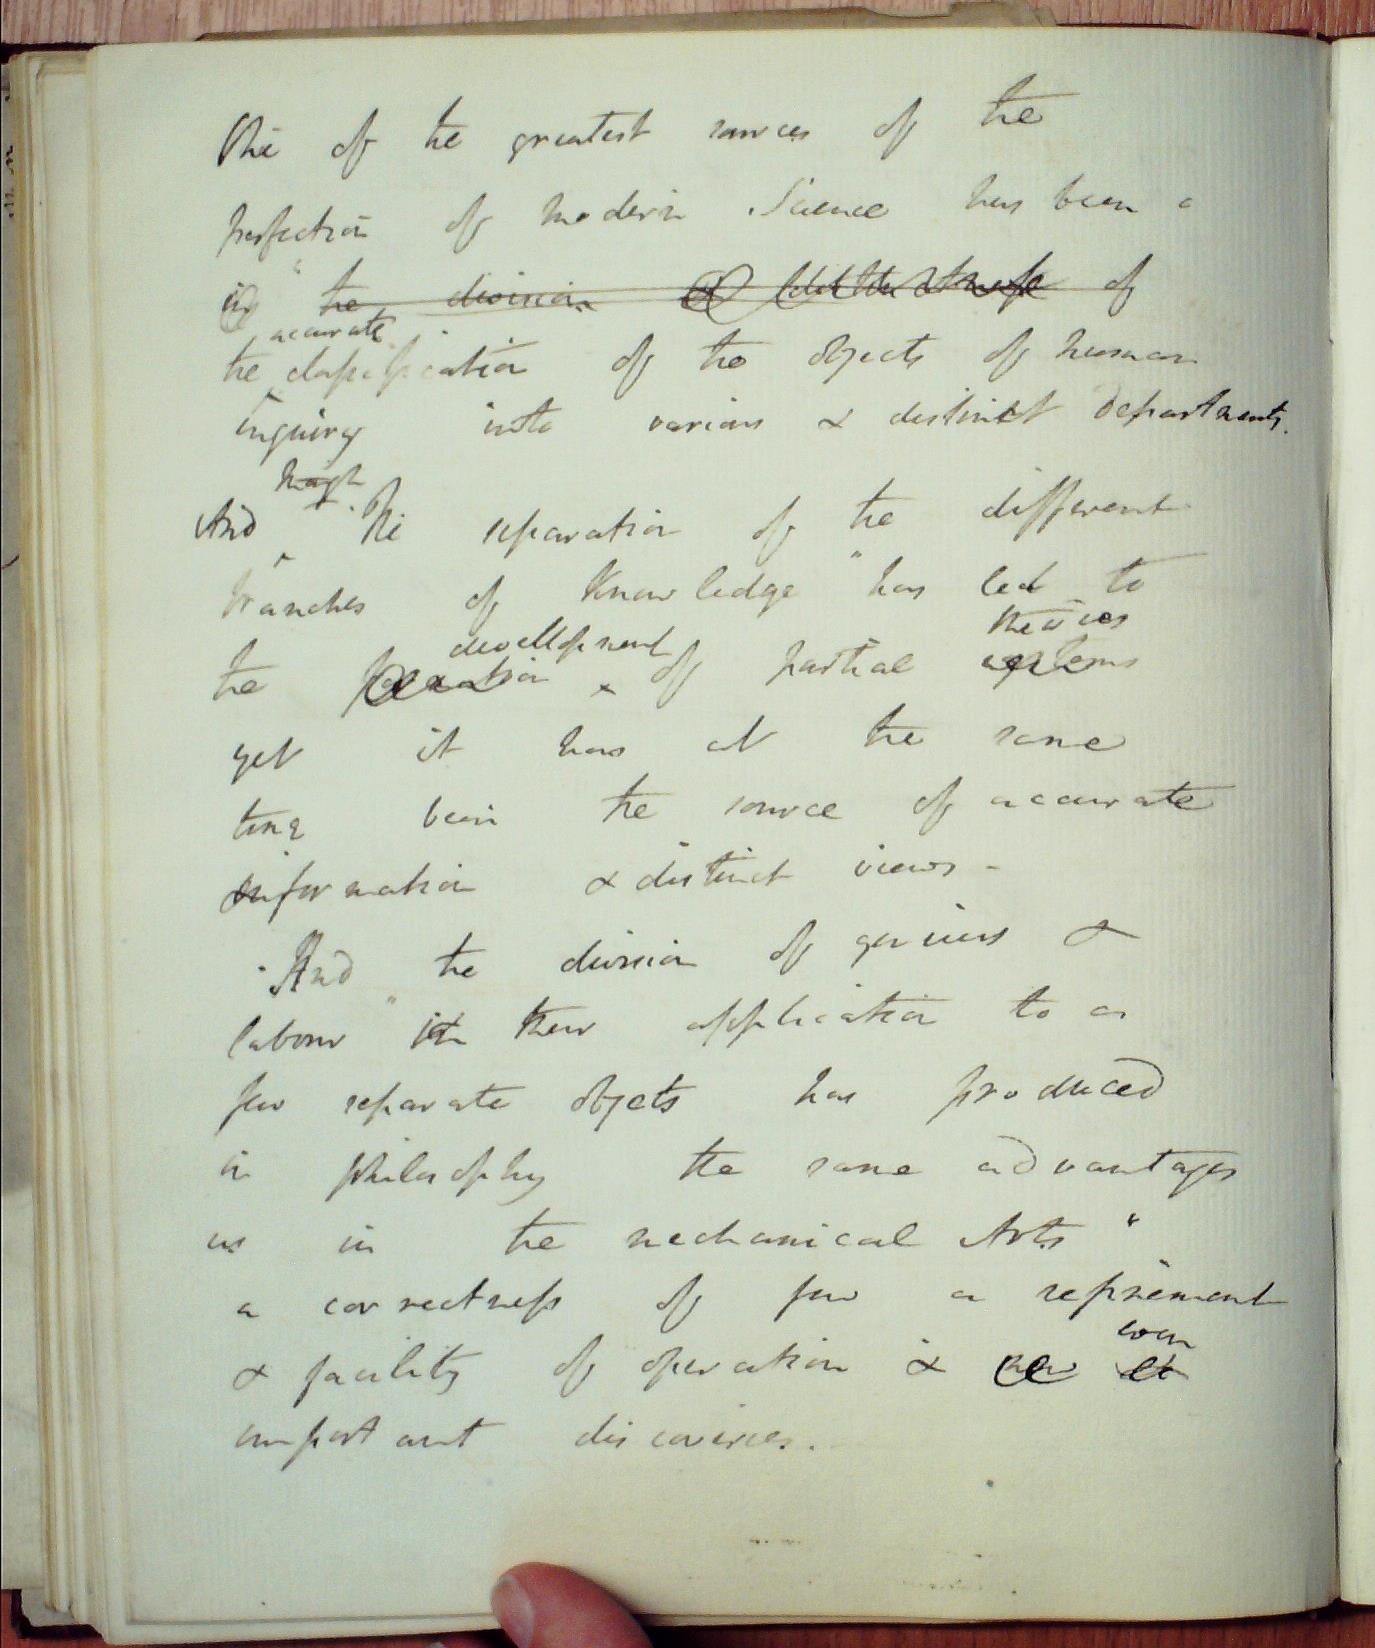 One of the greatest sources of the
perfection of modern Science has been a
in the division of
accurate
the classification of the objects of human
inquiry into various & distinct departments.
though
And The separation of the different
branches of Knowledge has led to
theories
development
the formation of partial systems
yet it has at the same
time been the source of accurate
information & distinct views -
And the division of genius &
labour in their application to a
few separate objects has produced
in philosophy the same advantages
as in the mechanical Arts
a correctness of few a refinement
even
& facility of operation &
important discoveries.